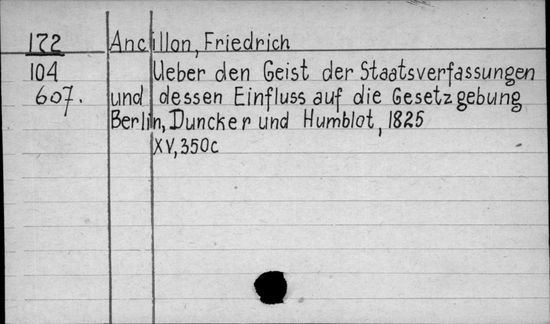 172 Ancillon, Friedrich
104 Ueber den Geist der Staatsverfassungen
607. und dessen Einfluss auf die Gesetzgebung
Berlin, Duncker und Humblot, 1825
XV, 350c